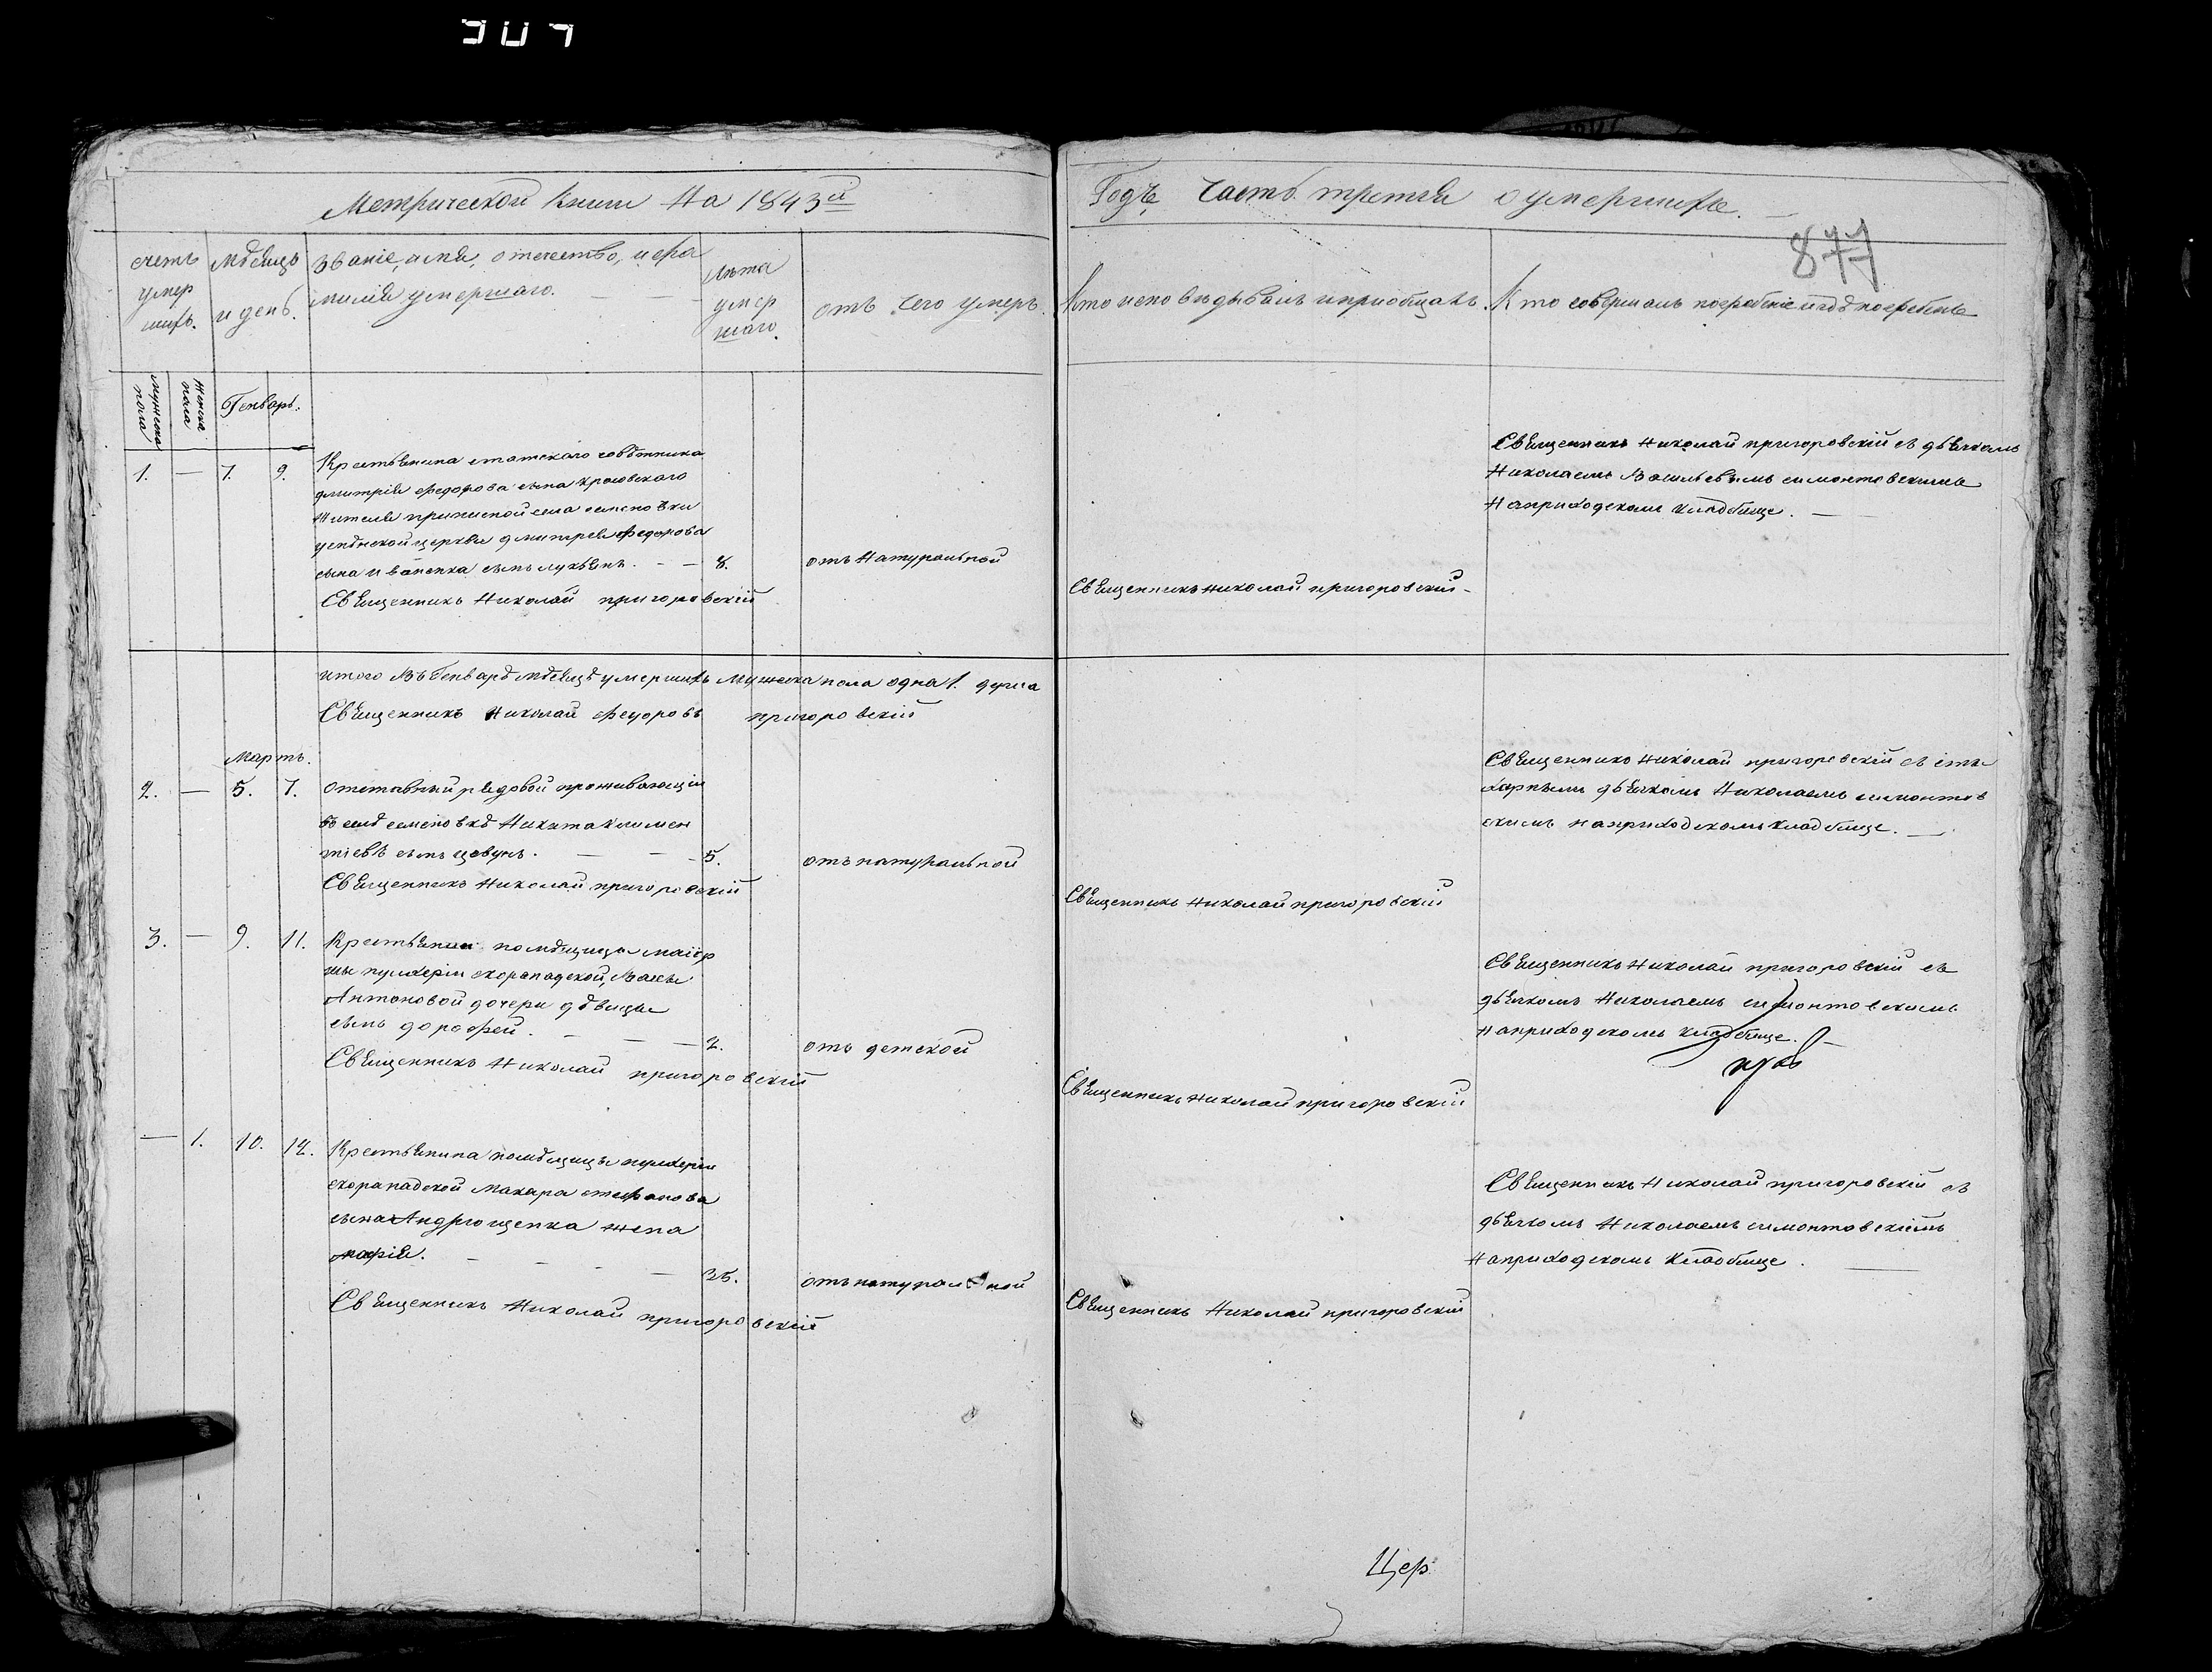 307
Метрической книги на 1843й
Годъ, Часть третья о умершихъ.
877
счетъ умер шихъ.
мѣсяцъ и день.
Званіе, имя, отечество, и фа
милія умершаго.
лѣта умер шаго.
отъ чего умеръ.
Кто исповѣдывалъ и приобщалъ.
Кто совершалъ погребеніе и гдѣ погребенъ
мужеска пола
женска пола
Генварь.
1. — 7. 9.
Крестьянина статского совѣтника
дмитрія федорова сына
жителя приписной села семеновки
церкви дмитрея федорова
сына иваненка сынъ лукьянъ. — — 8.
отъ натуральной
Священникъ Николай пригоровскій
Священникъ николай пригоровскій
Священникъ николай пригоровскій съ дьячкомъ
Николаемъ Васильевымъ симонтовскимъ
на приходскомъ кладбище. —
итого въ Генварѣ мѣсяцѣ умершихъ мужеска пола одна 1. душа
Священникъ николай федоровъ пригоровскій
Мартъ.
2. — 5. 7.
отставный рядовой проживающій
въ селѣ семеновкѣ никита климен
тіевъ сынъ — — 5.
отъ натуральной
Священникъ николай пригоровскій
Священникъ николай пригоровскій
Священникъ николай пригоровскій съ
дьячкомъ николаемъ симонтов
скимъ на приходскомъ кладбище. —
3. — 9. 11.
Крестьянки помѣщицы маіор
ши пулхеріи скорападской,
Антоновой дочери дѣвицы
сынъ дорофей. — — — 2.
отъ детской
Священникъ Николай пригоровскій
Священникъ николай пригоровскій
Священникъ николай пригоровскій съ
дьячкомъ николаемъ симонтовскимъ
на приходскомъ кладбище. —
— 1. 10. 12.
Крестьянина помѣщицы пулхеріи
скорападской макара стефанова
сына Андрющенка жена
марія. — — — — 35.
отъ натуральной
Священникъ николай пригоровскій
Священникъ николай пригоровскій
Священникъ николай пригоровскій съ
дьячкомъ николаемъ симонтовскимъ
на приходскомъ кладбище. —
Цер